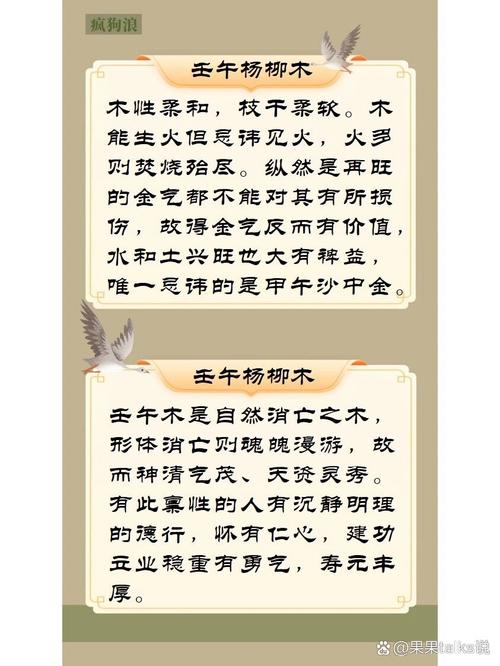 疯狗浪
壬午杨柳木
木性柔和，枝干柔软。木
能生火但忌讳见火，火多
则焚烧殆尽。纵然是再旺
的金气都不能对其有所损
伤，故得金气反而有价值，
水和土兴旺也大有裨益，
唯一忌讳的是甲午沙中金。
壬午杨柳木
壬午木是自然消亡之木，
形体消亡则魂魄漫游，故
而神清气茂、天资灵秀。
有此禀性的人有沉静明理
的德行，怀有仁心，建功
立业稳重有勇气，寿元丰
厚。
@果果talks说